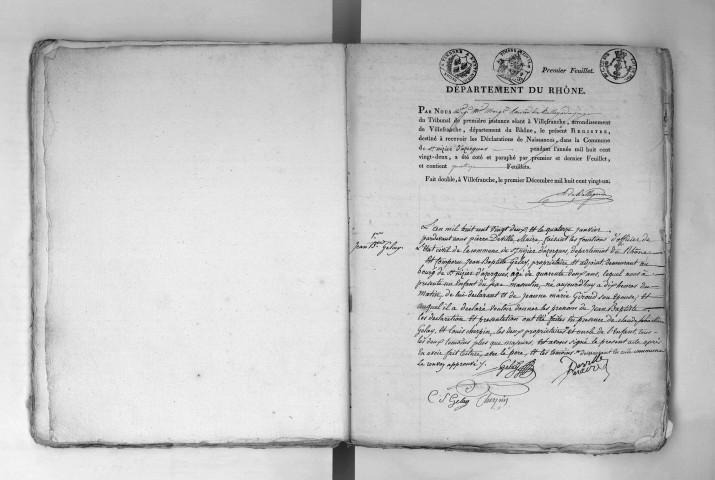 Premier Feuillet.
DÉPARTEMENT DU RHÔNE.
PAR NOUS
du Tribunal de première instance séant à Villefranche, arrondissement
de Villefranche, département du Rhône, le présent REGISTRE,
destiné à recevoir les Déclarations de Naissances, dans la Commune
de St nizier d'azergues pendant l'année mil huit cent
vingt-deux, a été coté et paraphé par premier et dernier Feuillet,
et contient Feuillets.
Fait double, à Villefranche, le premier Décembre mil huit cent vingt-un.
1.er
Jean B.te Gelay
L'an mil huit cent vingt deux et le quatorze janvier
pardevant nous pierre Deville, Maire, faisant les fonctions d'officier de
l'Etat civil de la commune de St nizier d'azergues, departement du Rhône
est comparu Jean Baptiste Gelay, propriétaire et adjoint, demeurant au
bourg de St nizier d'azergues, agé de quarante deux ans, lequel nous a
presenté un Enfant du sexe masculin, né aujourd'huy à dix heures du
matin, de lui declarant et de jeanne marie Giroud son épouse, et
auquel il a declaré vouloir donner les prenoms de Jean Baptiste
les declaration et presentation ont été faites en presence de claude
Gelay, et Louis cherpin, les deux propriétaires et oncle de l'Enfant, tous
les deux temoins plus que majeurs, et avons signé le present acte après
en avoir fait lecture, avec le père, et les temoins demeurant en cette commune
le renvoy approuvé
Gelay
Deville
maire
C J Gelay Cherpin